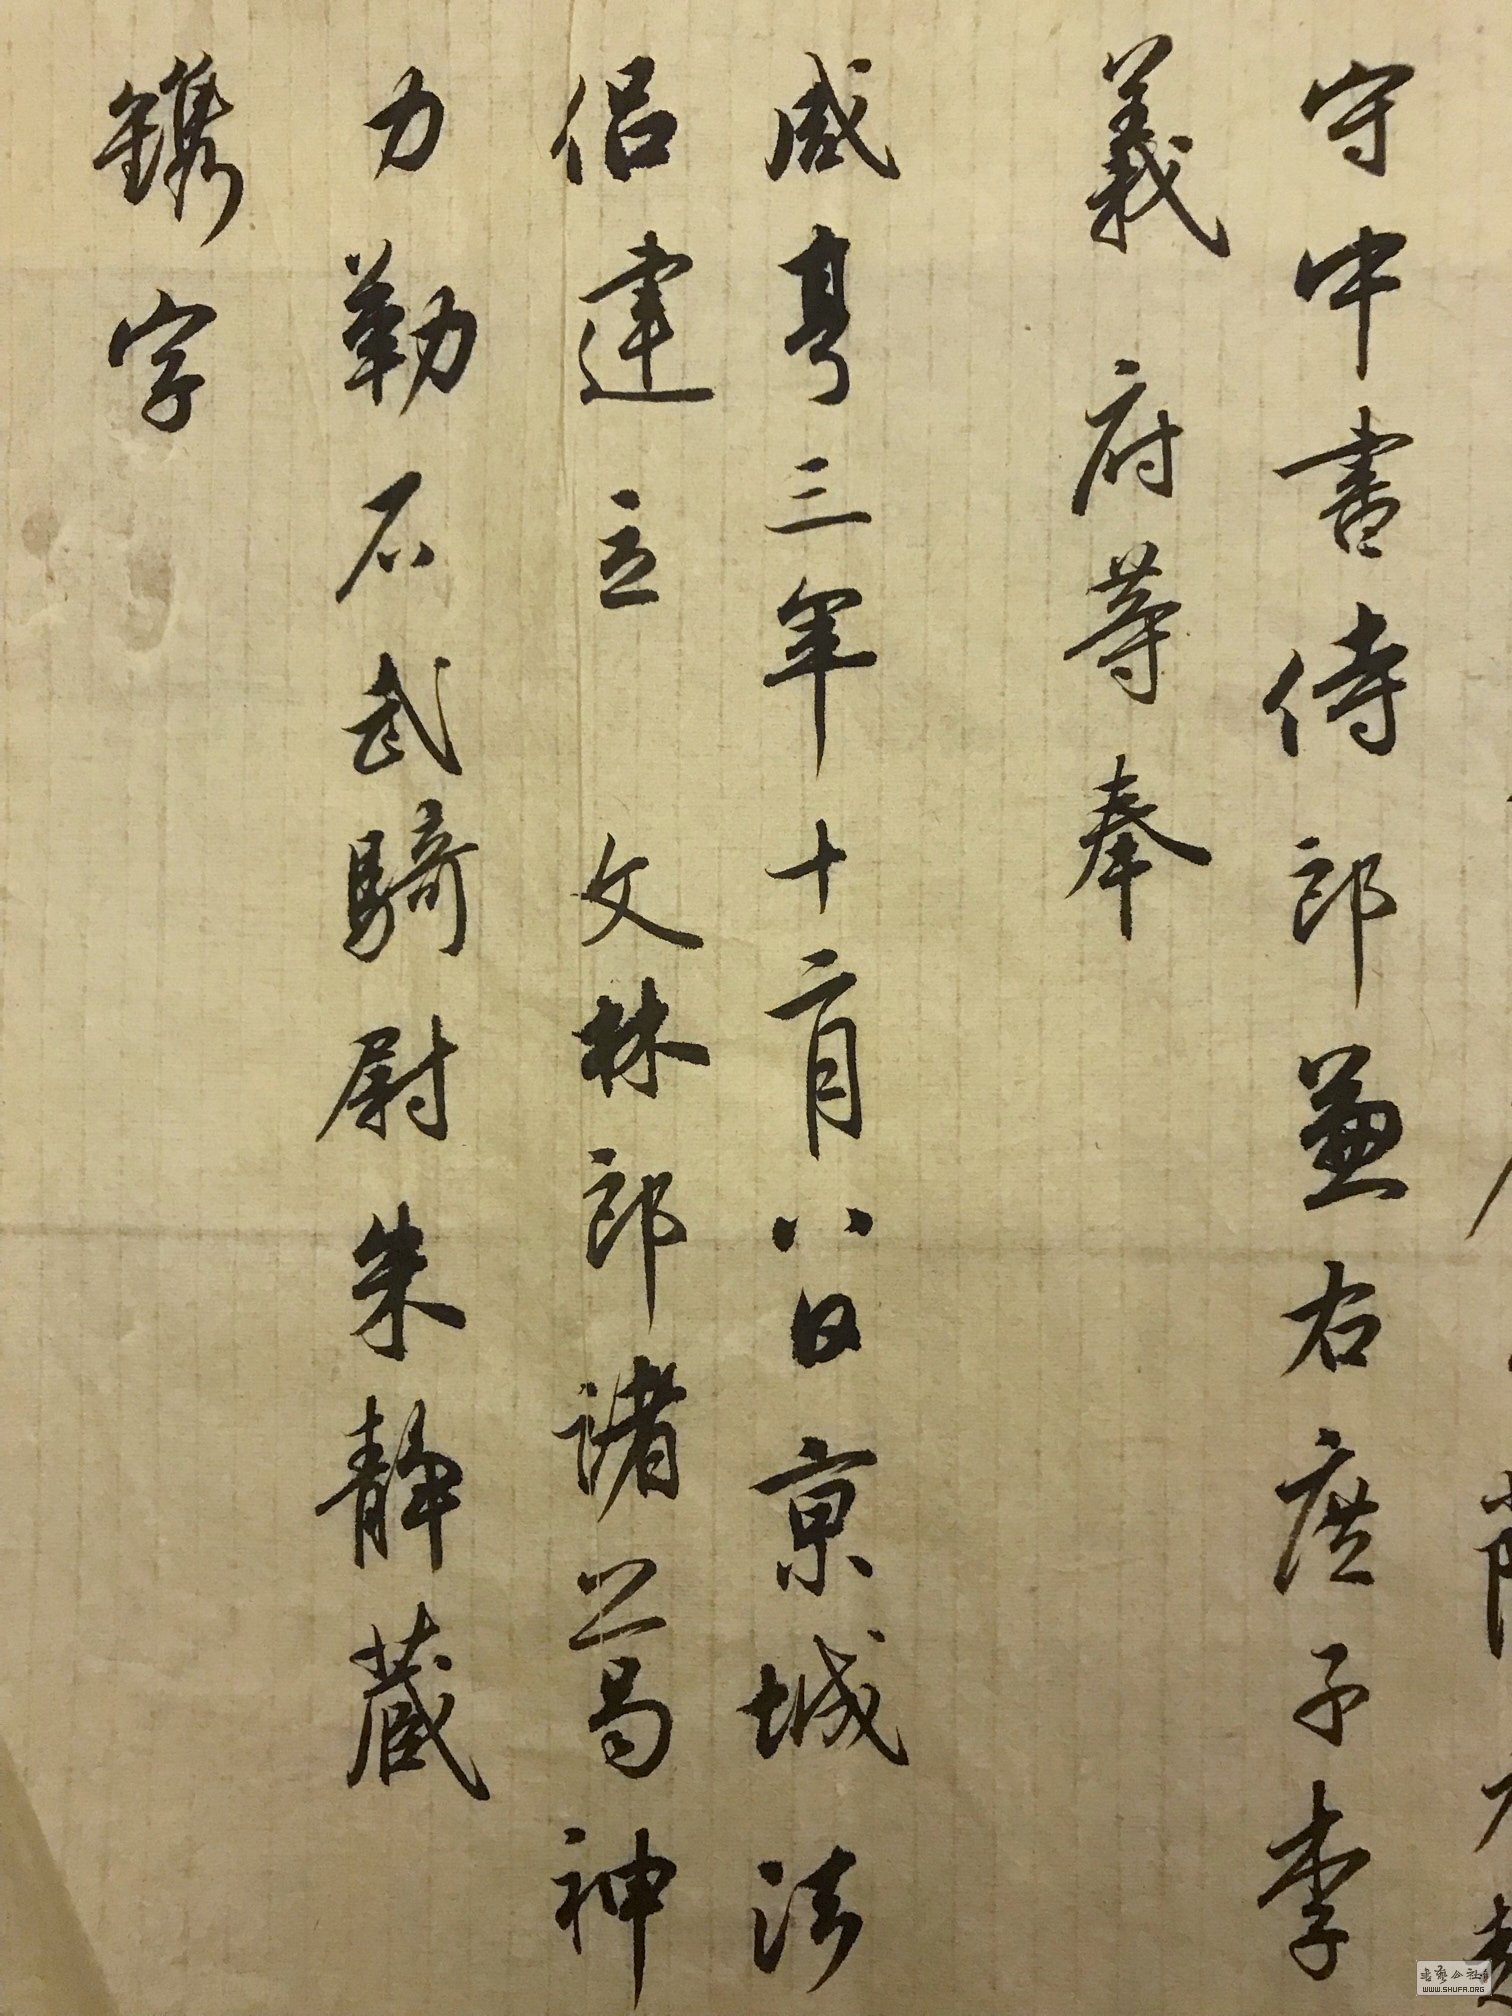 守中書侍郎兼右庶子李
義府等奉
咸亨三年十二月八日京城法
侶建立 文林郎諸葛神
力勒石武騎尉朱静藏
鐫字
書藝公社
WWW.SHUFA.ORG